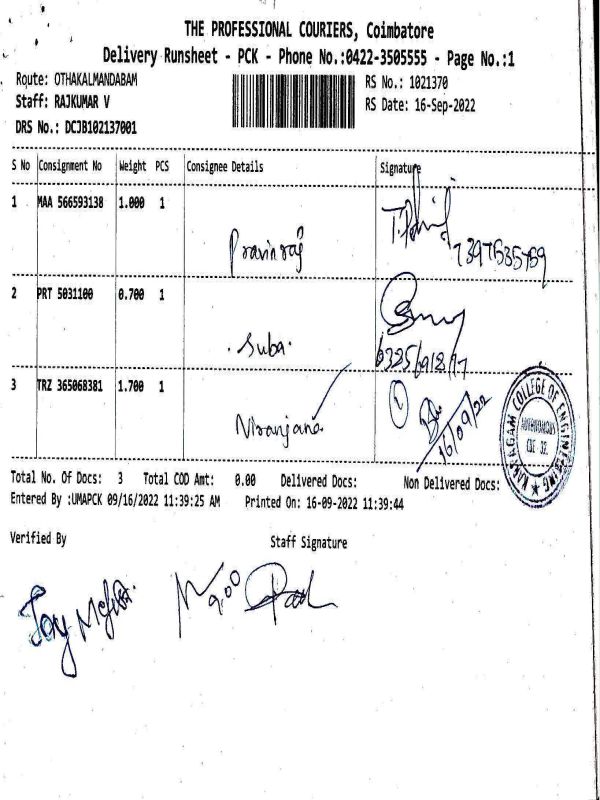 THE PROFESSIONAL COURIERS, Coimbatore
Delivery Runsheet - PCK - Phone No.:0422-3505555 - Page No.:1
Route: OTHAKALMANDABAM
RS No.: 1021370
Staff: RAJKUMAR V
RS Date: 16-Sep-2022
DRS No.: DCJB102137001
S No Consignment No Weight PCS Consignee Details Signature
1 MAA 566593138 1.000 1
Pravin raj
2 PRT 5031100 0.700 1
Suba.
3 TRZ 365068381 1.700 1
Niranjana
16/09/22
KARPAGAM COLLEGE OF ENGINEERING
AUTONOMOUS
CBE 32.
Total No. Of Docs: 3 Total COD Amt: 0.00 Delivered Docs: Non Delivered Docs:
Entered By :UMAPCK 09/16/2022 11:39:25 AM Printed On: 16-09-2022 11:39:44
Verified By Staff Signature
9:00